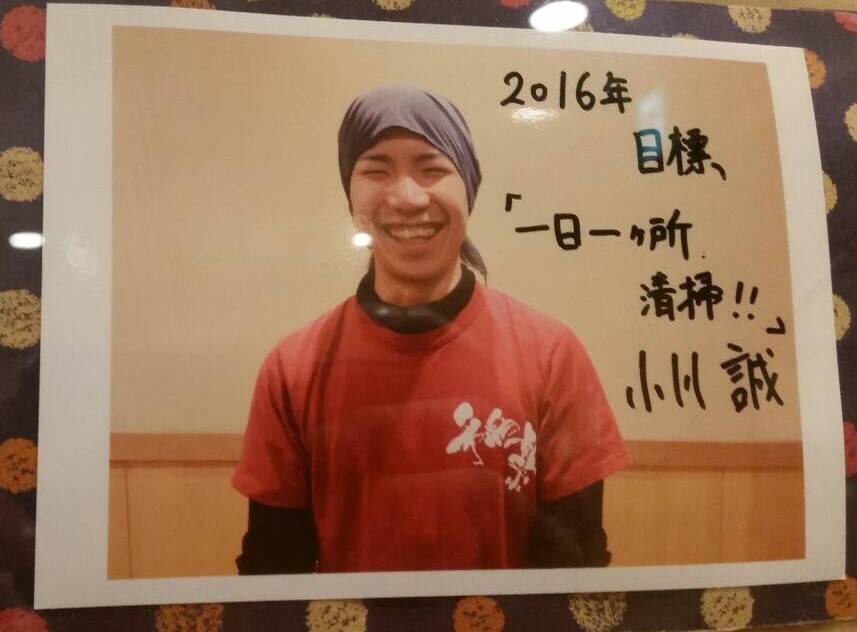 2016年
目標、
「一日一ヶ所
清掃!!」
小川 誠